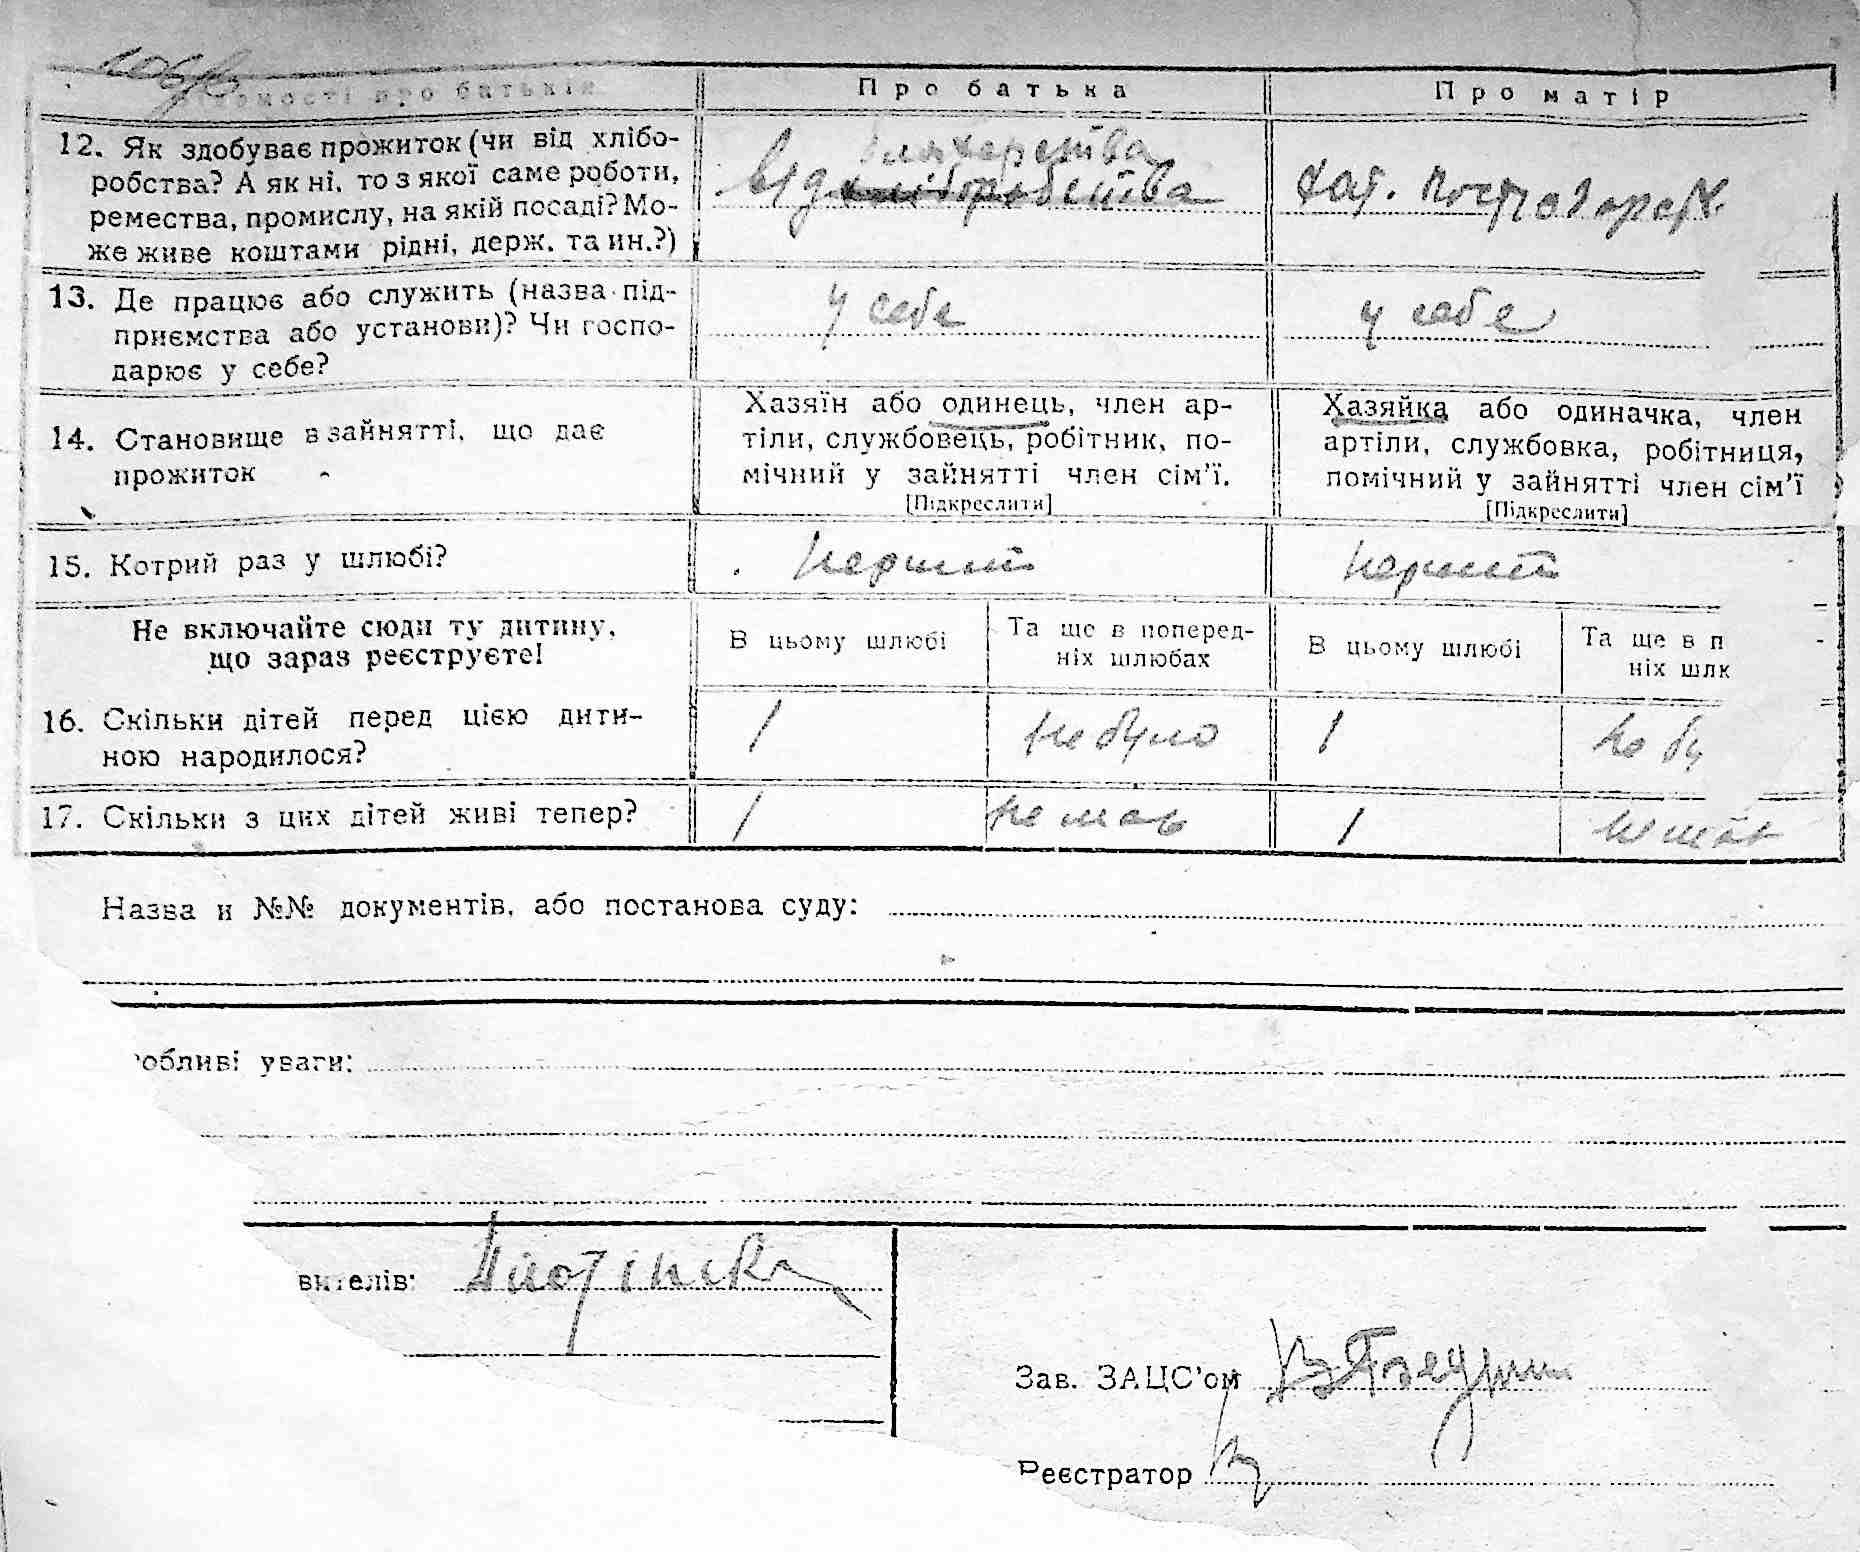 Відомості про батьків
Про батька
Про матір
12. Як здобуває прожиток (чи від хлібо-
робства? А як ні, то з якої саме роботи,
ремества, промислу, на якій посаді? Мо-
же живе коштами рідні, держ. та ин.?)
від хліборобства
хат.
13. Де працює або служить (назва під-
приємства або установи)? Чи госпо-
дарює у себе?
у себе
у себе
14. Становище в зайнятті, що дає
прожиток
Хазяїн або одинець, член ар-
тіли, службовець, робітник, по-
мічний у зайнятті член сім'ї.
[Підкреслити]
Хазяйка або одиначка, член
артіли, службовка, робітниця,
помічний у зайнятті член сім'ї
[Підкреслити]
15. Котрий раз у шлюбі?
перший
перший
Не включайте сюди ту дитину,
що зараз реєструєте!
В цьому шлюбі
Та ще в поперед-
ніх шлюбах
В цьому шлюбі
Та ще в п
ніх шлю
16. Скільки дітей перед цією дити-
ною народилося?
1
не було
1
не бу
17. Скільки з цих дітей живі тепер?
1
немає
1
немає
Назва и №№ документів, або постанова суду:
обливі уваги:
вителів:
Зав. ЗАЦС'ом
Реєстратор